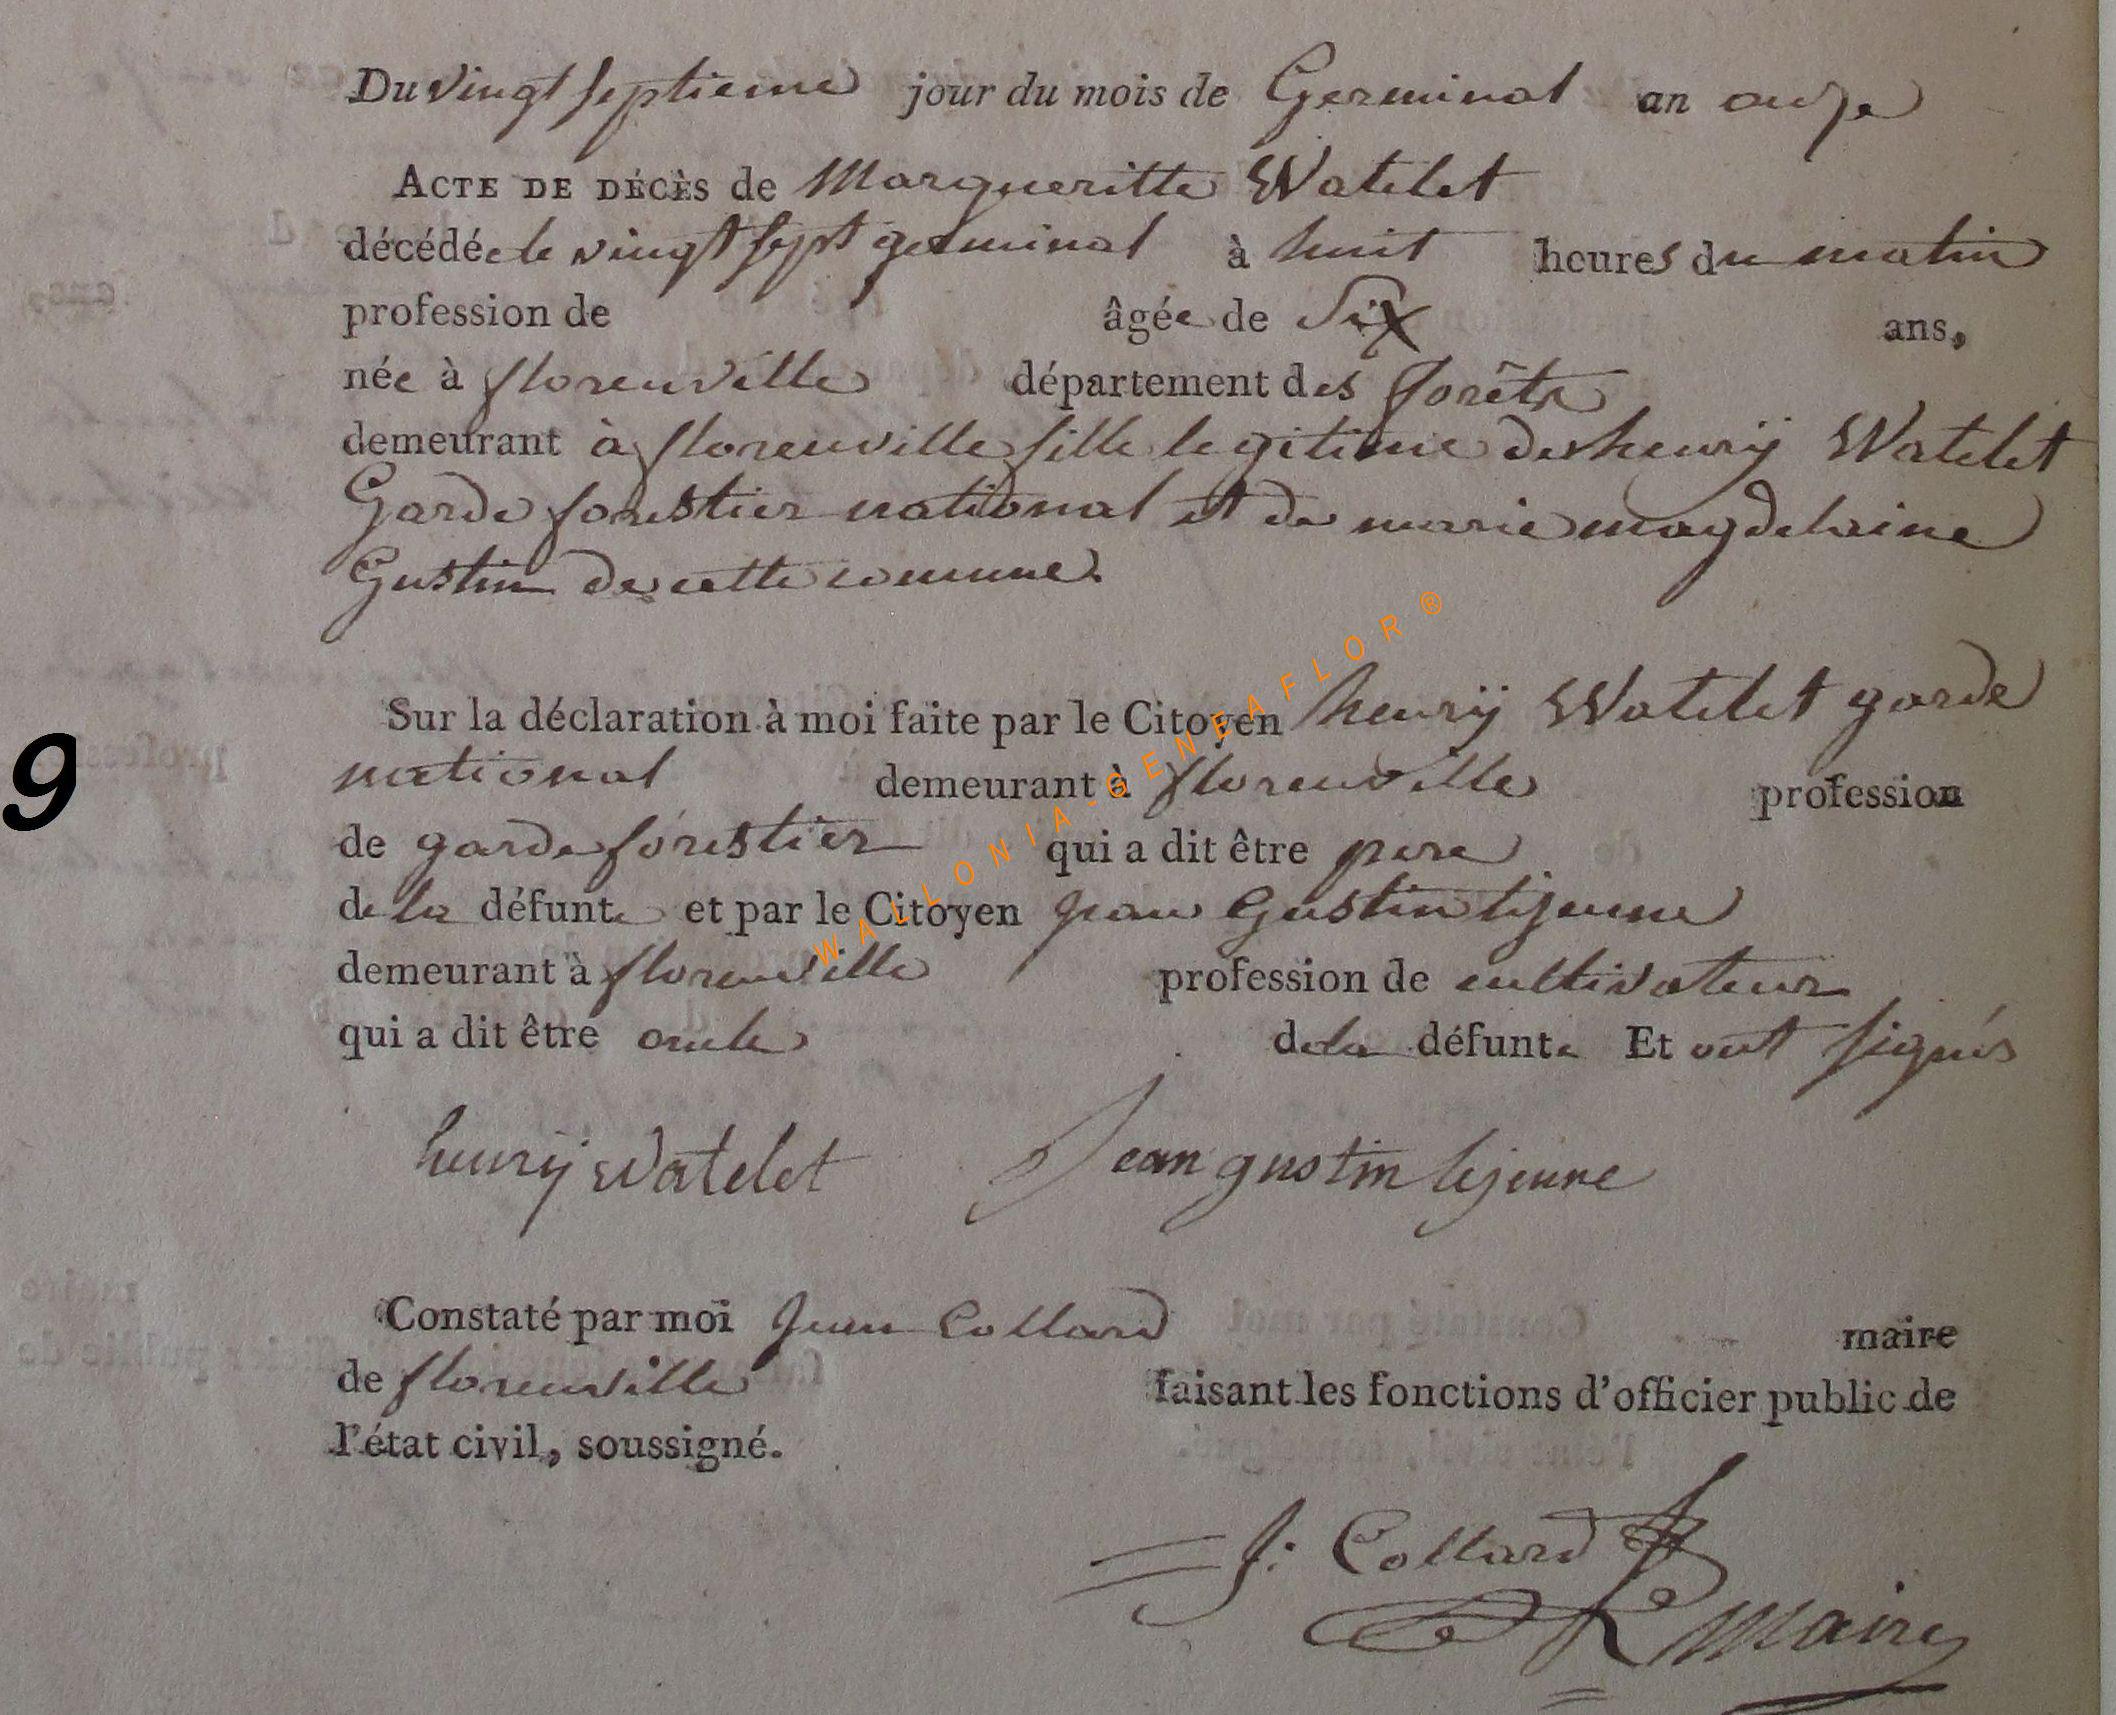 Du vingt septieme jour du mois de Germinal an onze
ACTE DE DÉCÈS de Margueritte Watelet
décédée le vingt sept germinal à huit heures du matin
profession de âgée de Six ans,
née à florenville département des forêts
demeurant à florenville fille legitime de henrÿ Watelet
Garde forestier national et de marie magdelaine
Gustin de cette comune.
Sur la déclaration à moi faite par le Citoyen henrÿ Watelet garde
national demeurant à florenville profession
9
de garde forestier qui a dit être pere
de la défunte et par le Citoyen jean Gustin lejeune
demeurant à florenville profession de cultivateur
qui a dit être oncle de la défunte Et ont signés
henrÿ Watelet Jean gustin lejeune
Constaté par moi Jean Collard maire
de florenville faisant les fonctions d'officier public de
l'état civil, soussigné.
J: Collard
Maire
WALLONIA-GENEAFLOR®